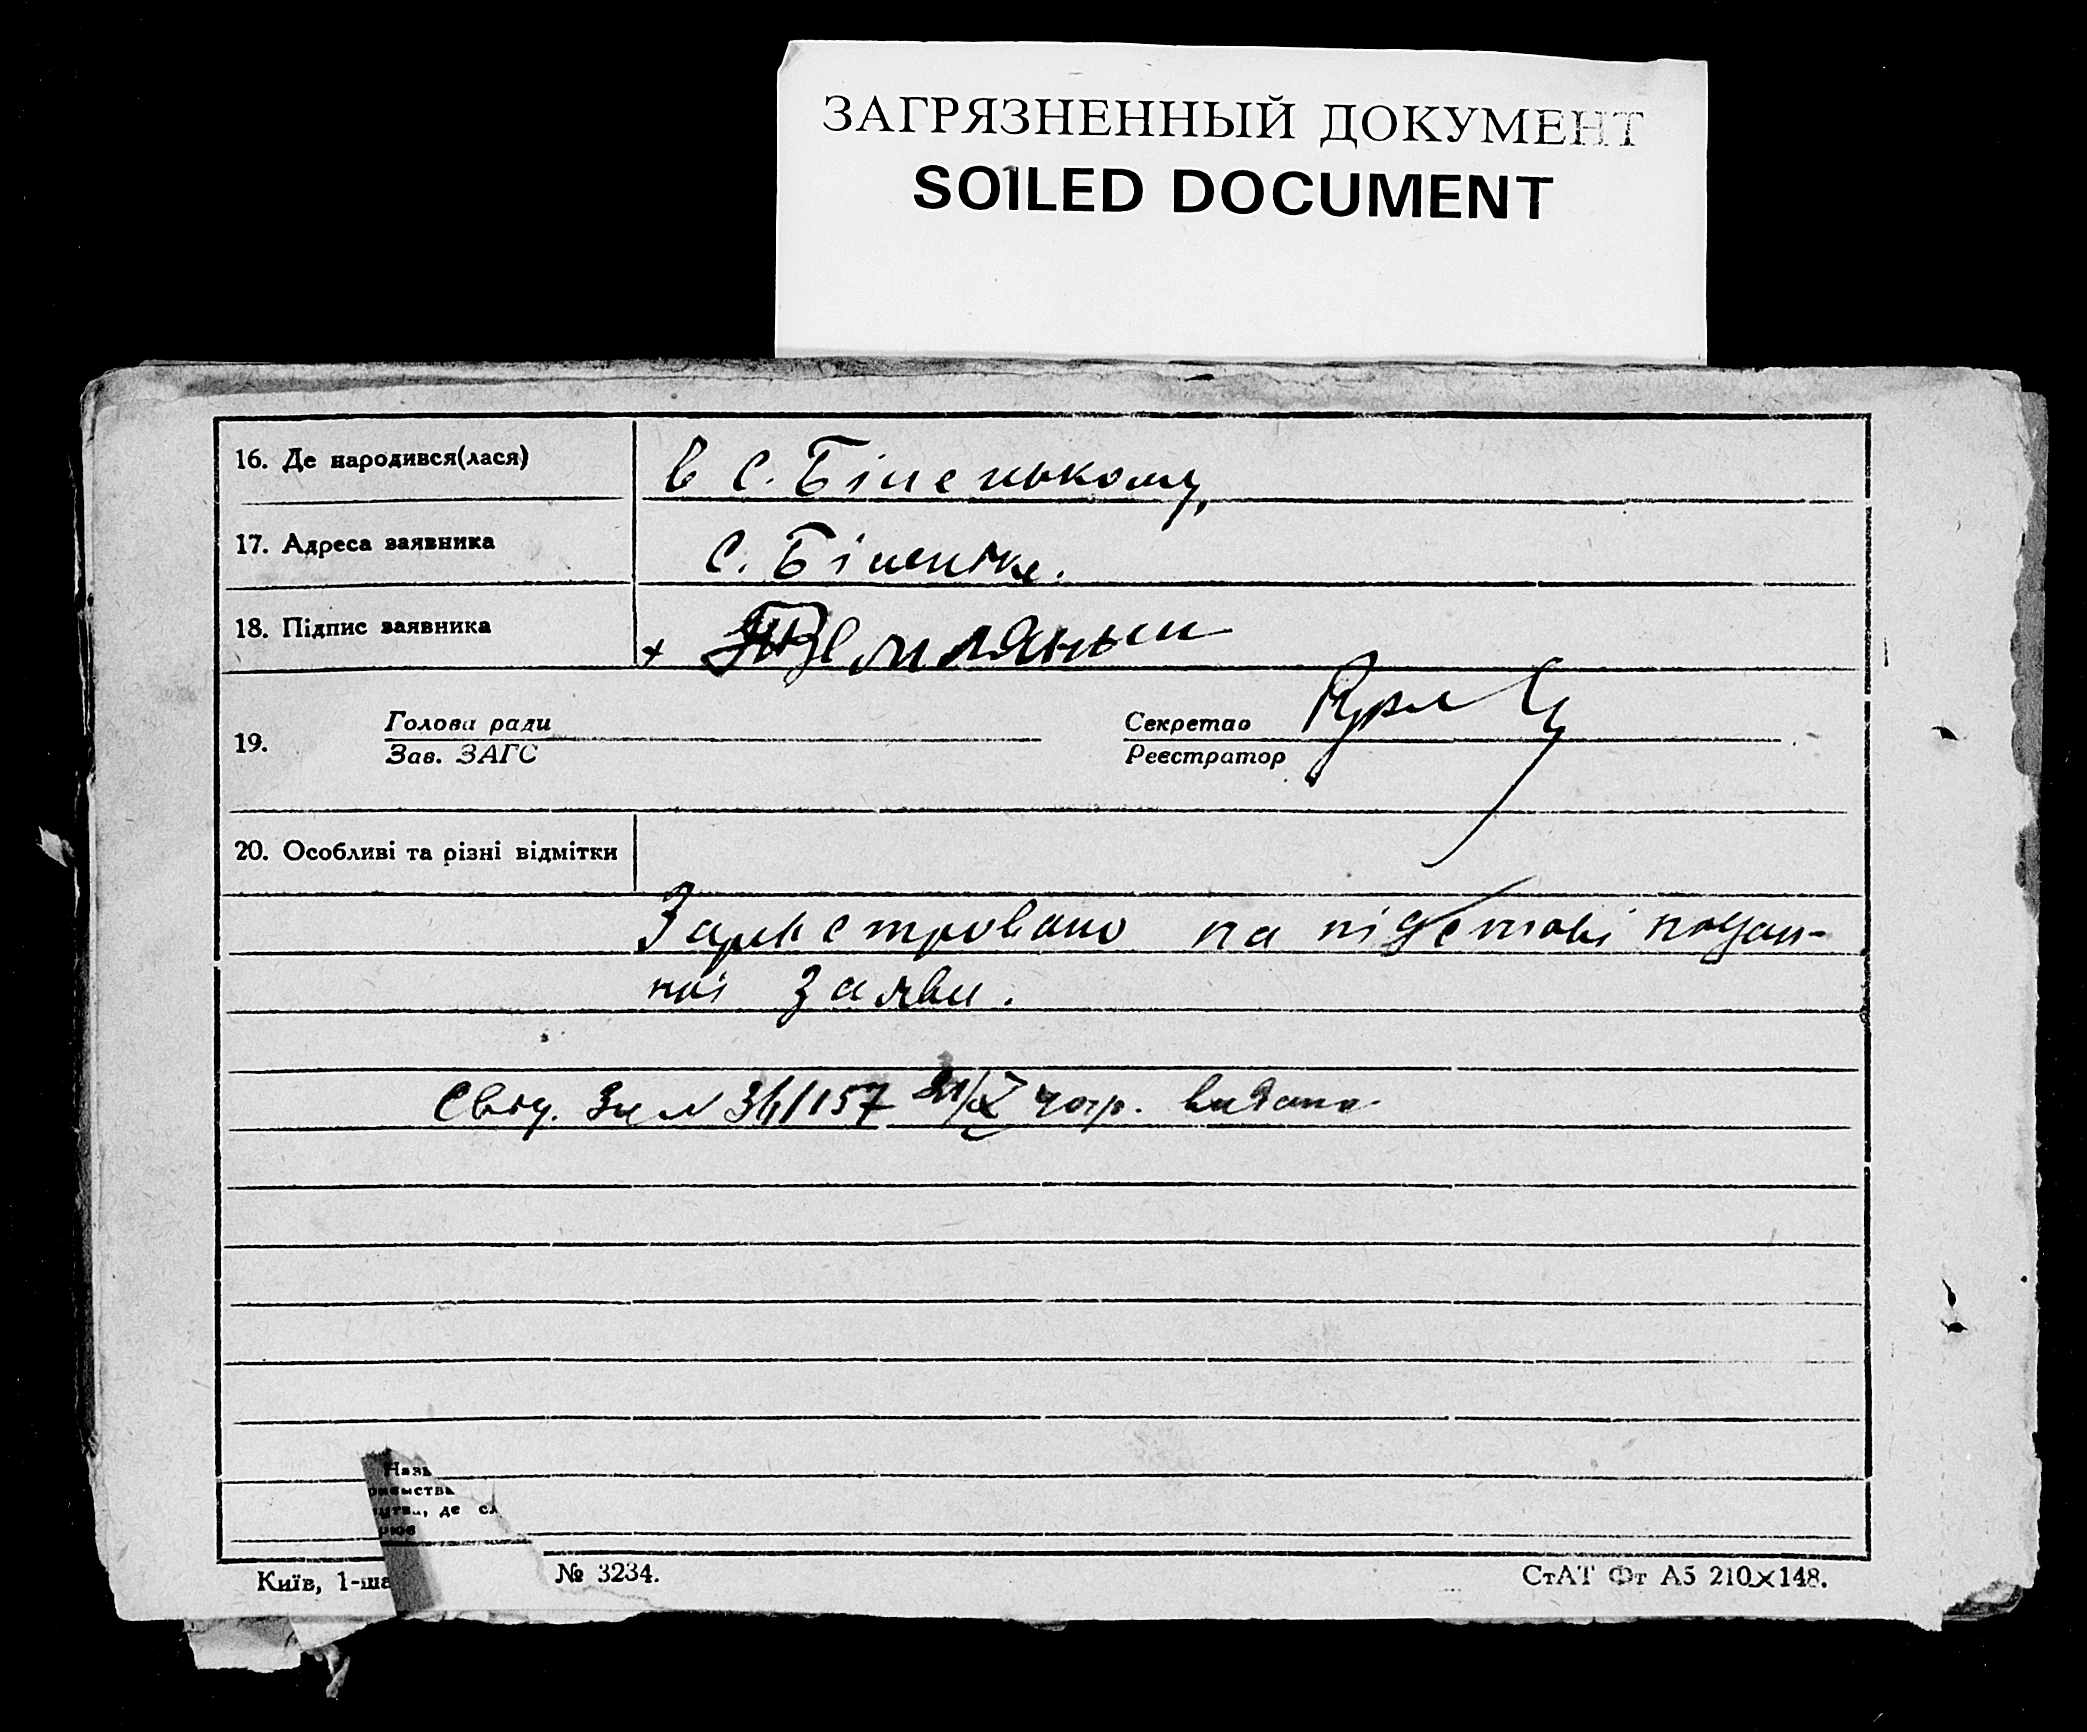 ЗАГРЯЗНЕННЫЙ ДОКУМЕНТ
SOILED DOCUMENT
16. Де народився(лася) в с. Біленькому,
17. Адреса заявника с. Біленьке.
18. Підпис заявника
19. Голова ради
Зав. ЗАГС
Секретар
Реєстратор
20. Особливі та різні відмітки
Зареєстровано на підставі подан-
ної заяви.
видано
Київ, 1-ша
№ 3234.
СтАТ Фт А5 210×148.